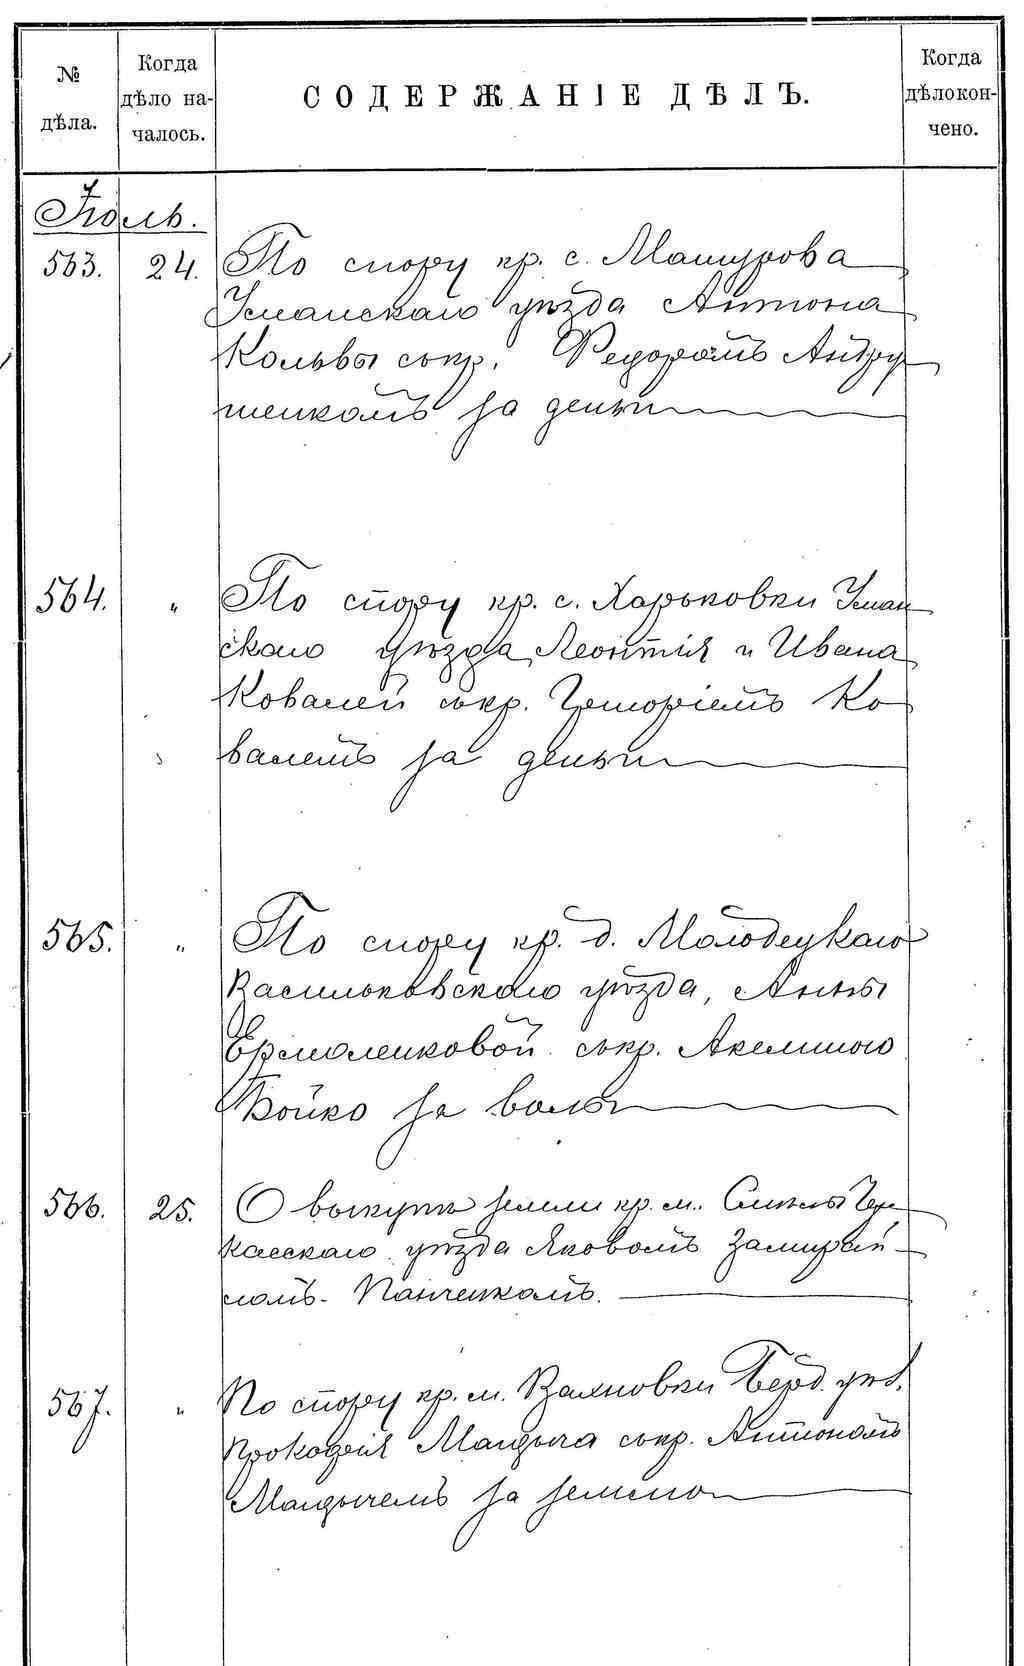 № дѣла.
Когда дѣло на-чалось.
СОДЕРЖАНІЕ ДѢЛЪ.
Когда дѣло кон-чено.
Іюль.
563. 24. По спору кр. с. Машурова
Уманскаго уѣзда Антона
Кользы съ кр. Федоромъ Андру
щенкомъ за деньги
564. " По спору кр. с. Харьковки Уман
скаго уѣзда Леонтія и Ивана
Ковалей съ кр. Григоріемъ Ко
валемъ за деньги
565. " По спору кр. д. Молодецкаго
Васильковскаго уѣзда, Анны
Ермоленковой съ кр. Акелиною
Бойко за волы
566. 25. О выкупѣ земли кр. м. Смѣлы Чер
касскаго уѣзда Яковомъ
Панченкомъ.
567. " По спору кр. м. Вахновки Берд. уѣз.
Прокофія Магдыча съ кр. Антономъ
Магдычемъ за землю